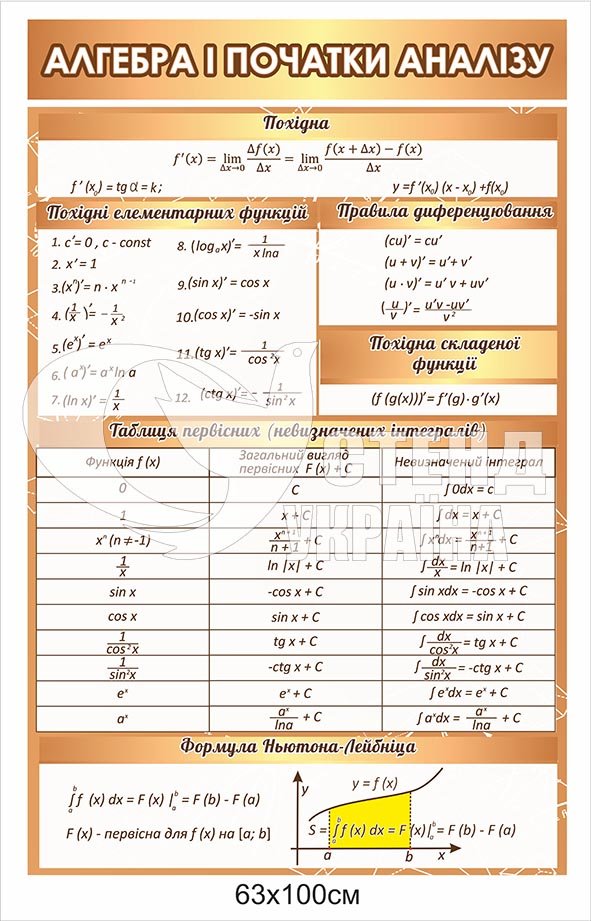 АЛГЕБРА І ПОЧАТКИ АНАЛІЗУ
Похідна
f'(x) = lim Δx→0 Δf(x)/Δx = lim Δx→0 (f(x + Δx) − f(x))/Δx
f '(x₀) = tg α = k; y =f '(x₀) (x - x₀) +f(x₀)
Похідні елементарних функцій
1. c'= 0 , c - const
2. x' = 1
3.(xⁿ)'= n · x ⁿ ⁻¹
4. (1/x)'= - 1/x²
5.(eˣ)' = eˣ
6. ( aˣ)'= aˣ ln a
7. (ln x)' = 1/x
8. (log ₐx)'= 1/(x lna)
9.(sin x)' = cos x
10.(cos x)' = -sin x
11.(tg x)'= 1/cos ²x
12. (ctg x)' = - 1/sin² x
Правила диференцювання
(cu)' = cu'
(u + v)' = u'+ v'
(u · v)' = u' v + uv'
(u/v)' = (u'v -uv')/v²
Похідна складеної
функції
(f (g(x)))' = f'(g) · g'(x)
Таблиця первісних (невизначених інтегралів)
Функція f (x) Загальний вигляд первісних F (x) + C Невизначений інтеграл
0 C ∫ 0dx = c
1 x + C ∫ dx = x + C
xⁿ (n ≠ -1) xⁿ⁺¹/(n + 1) + C ∫ xⁿdx = xⁿ⁺¹/(n+1) + C
1/x ln |x| + C ∫ dx/x = ln |x| + C
sin x -cos x + C ∫ sin xdx = -cos x + C
cos x sin x + C ∫ cos xdx = sin x + C
1/cos²x tg x + C ∫ dx/cos²x = tg x + C
1/sin²x -ctg x + C ∫ dx/sin²x = -ctg x + C
eˣ eˣ + C ∫ eˣdx = eˣ + C
aˣ aˣ/lna + C ∫ aˣdx = aˣ/lna + C
СТЕНД
УКРАЇНА
Формула Ньютона-Лейбніца
∫ₐᵇ f (x) dx = F (x) |ₐᵇ = F (b) - F (a)
F (x) - первісна для f (x) на [a; b]
y
y = f (x)
S = ∫ₐᵇ f (x) dx = F (x)|ₐᵇ = F (b) - F (a)
a b x
63х100см